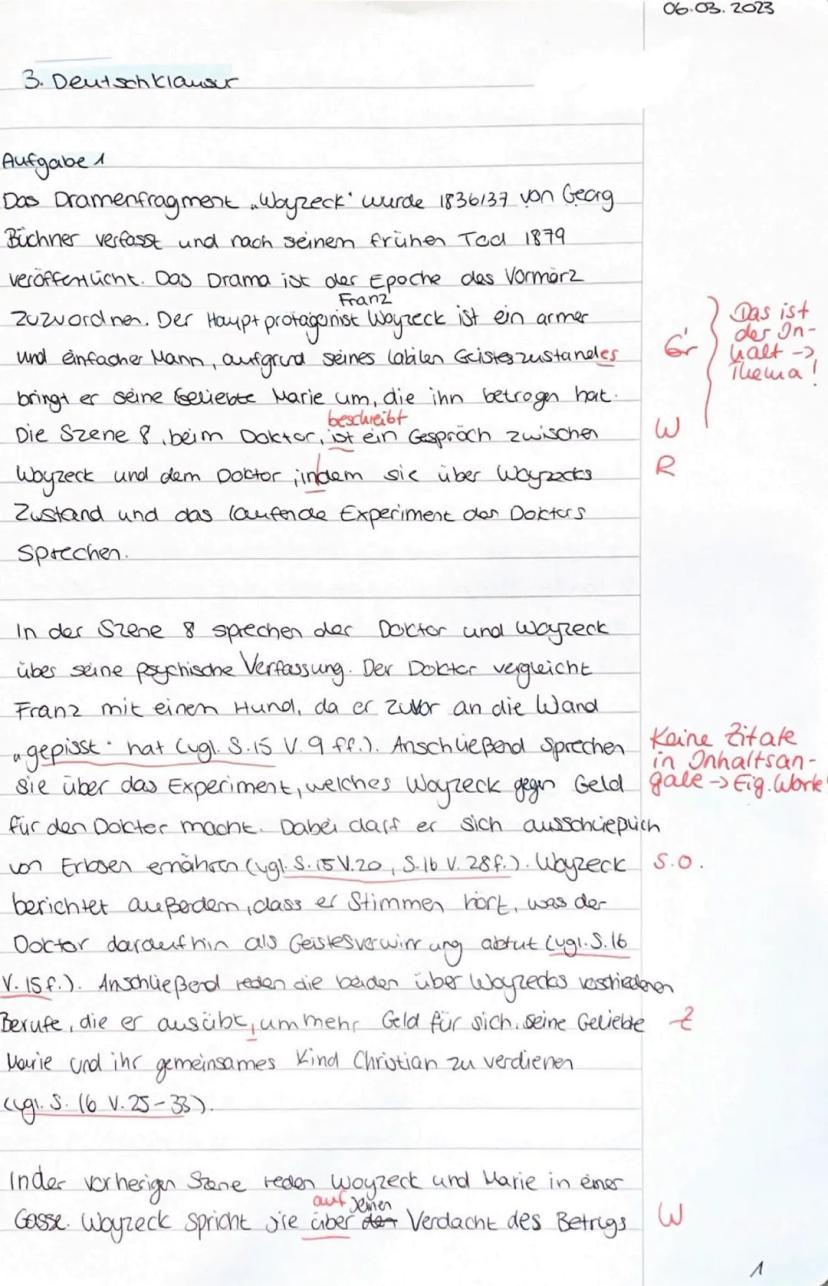 06.03.2023
3. Deutschklausur
Aufgabe 1
Das Dramenfragment „Woyzeck" wurde 1836/37 von Georg
Büchner verfasst und nach seinem frühen Tod 1879
veröffentlicht. Das Drama ist der Epoche des Vormärz
Franz
zuzuordnen. Der Hauptprotagonist Woyzeck ist ein armer
und einfacher Mann, aufgrund seines labilen Geisteszustandes
bringt er seine Geliebte Marie um, die ihn betrogen hat.
Gr
Das ist
der In-
halt ->
Thema!
beschreibt
Die Szene 8, beim Doktor, ist ein Gespräch zwischen
W
Woyzeck und dem Doktor, indem sie über Woyzecks
R
Zustand und das laufende Experiment des Doktors
sprechen.
In der Szene 8 sprechen der Doktor und Woyzeck
über seine psychische Verfassung. Der Doktor vergleicht
Franz mit einem Hund, da er zuvor an die Wand
„gepisst" hat (vgl. S.15 V.9 ff.). Anschließend sprechen
sie über das Experiment, welches Woyzeck gegen Geld
Keine Zitate
in Inhaltsan-
gabe -> Eig. Worte!
für den Doktor macht. Dabei darf er sich ausschließlich
von Erbsen ernähren (vgl. S.15 V.20, S.16 V.28f.). Woyzeck
s.o.
berichtet außerdem, dass er Stimmen hört, was der
Doktor daraufhin als Geistesverwirrung abtut (vgl. S.16
V.15f.). Anschließend reden die beiden über Woyzecks verschiedenen
Berufe, die er ausübt, um mehr Geld für sich, seine Geliebte
Z
Marie und ihr gemeinsames Kind Christian zu verdienen
(vgl. S.16 V.25-33).
In der vorherigen Szene reden Woyzeck und Marie in einer
auf seinen
Gasse. Woyzeck spricht sie über den Verdacht des Betrugs
W
1